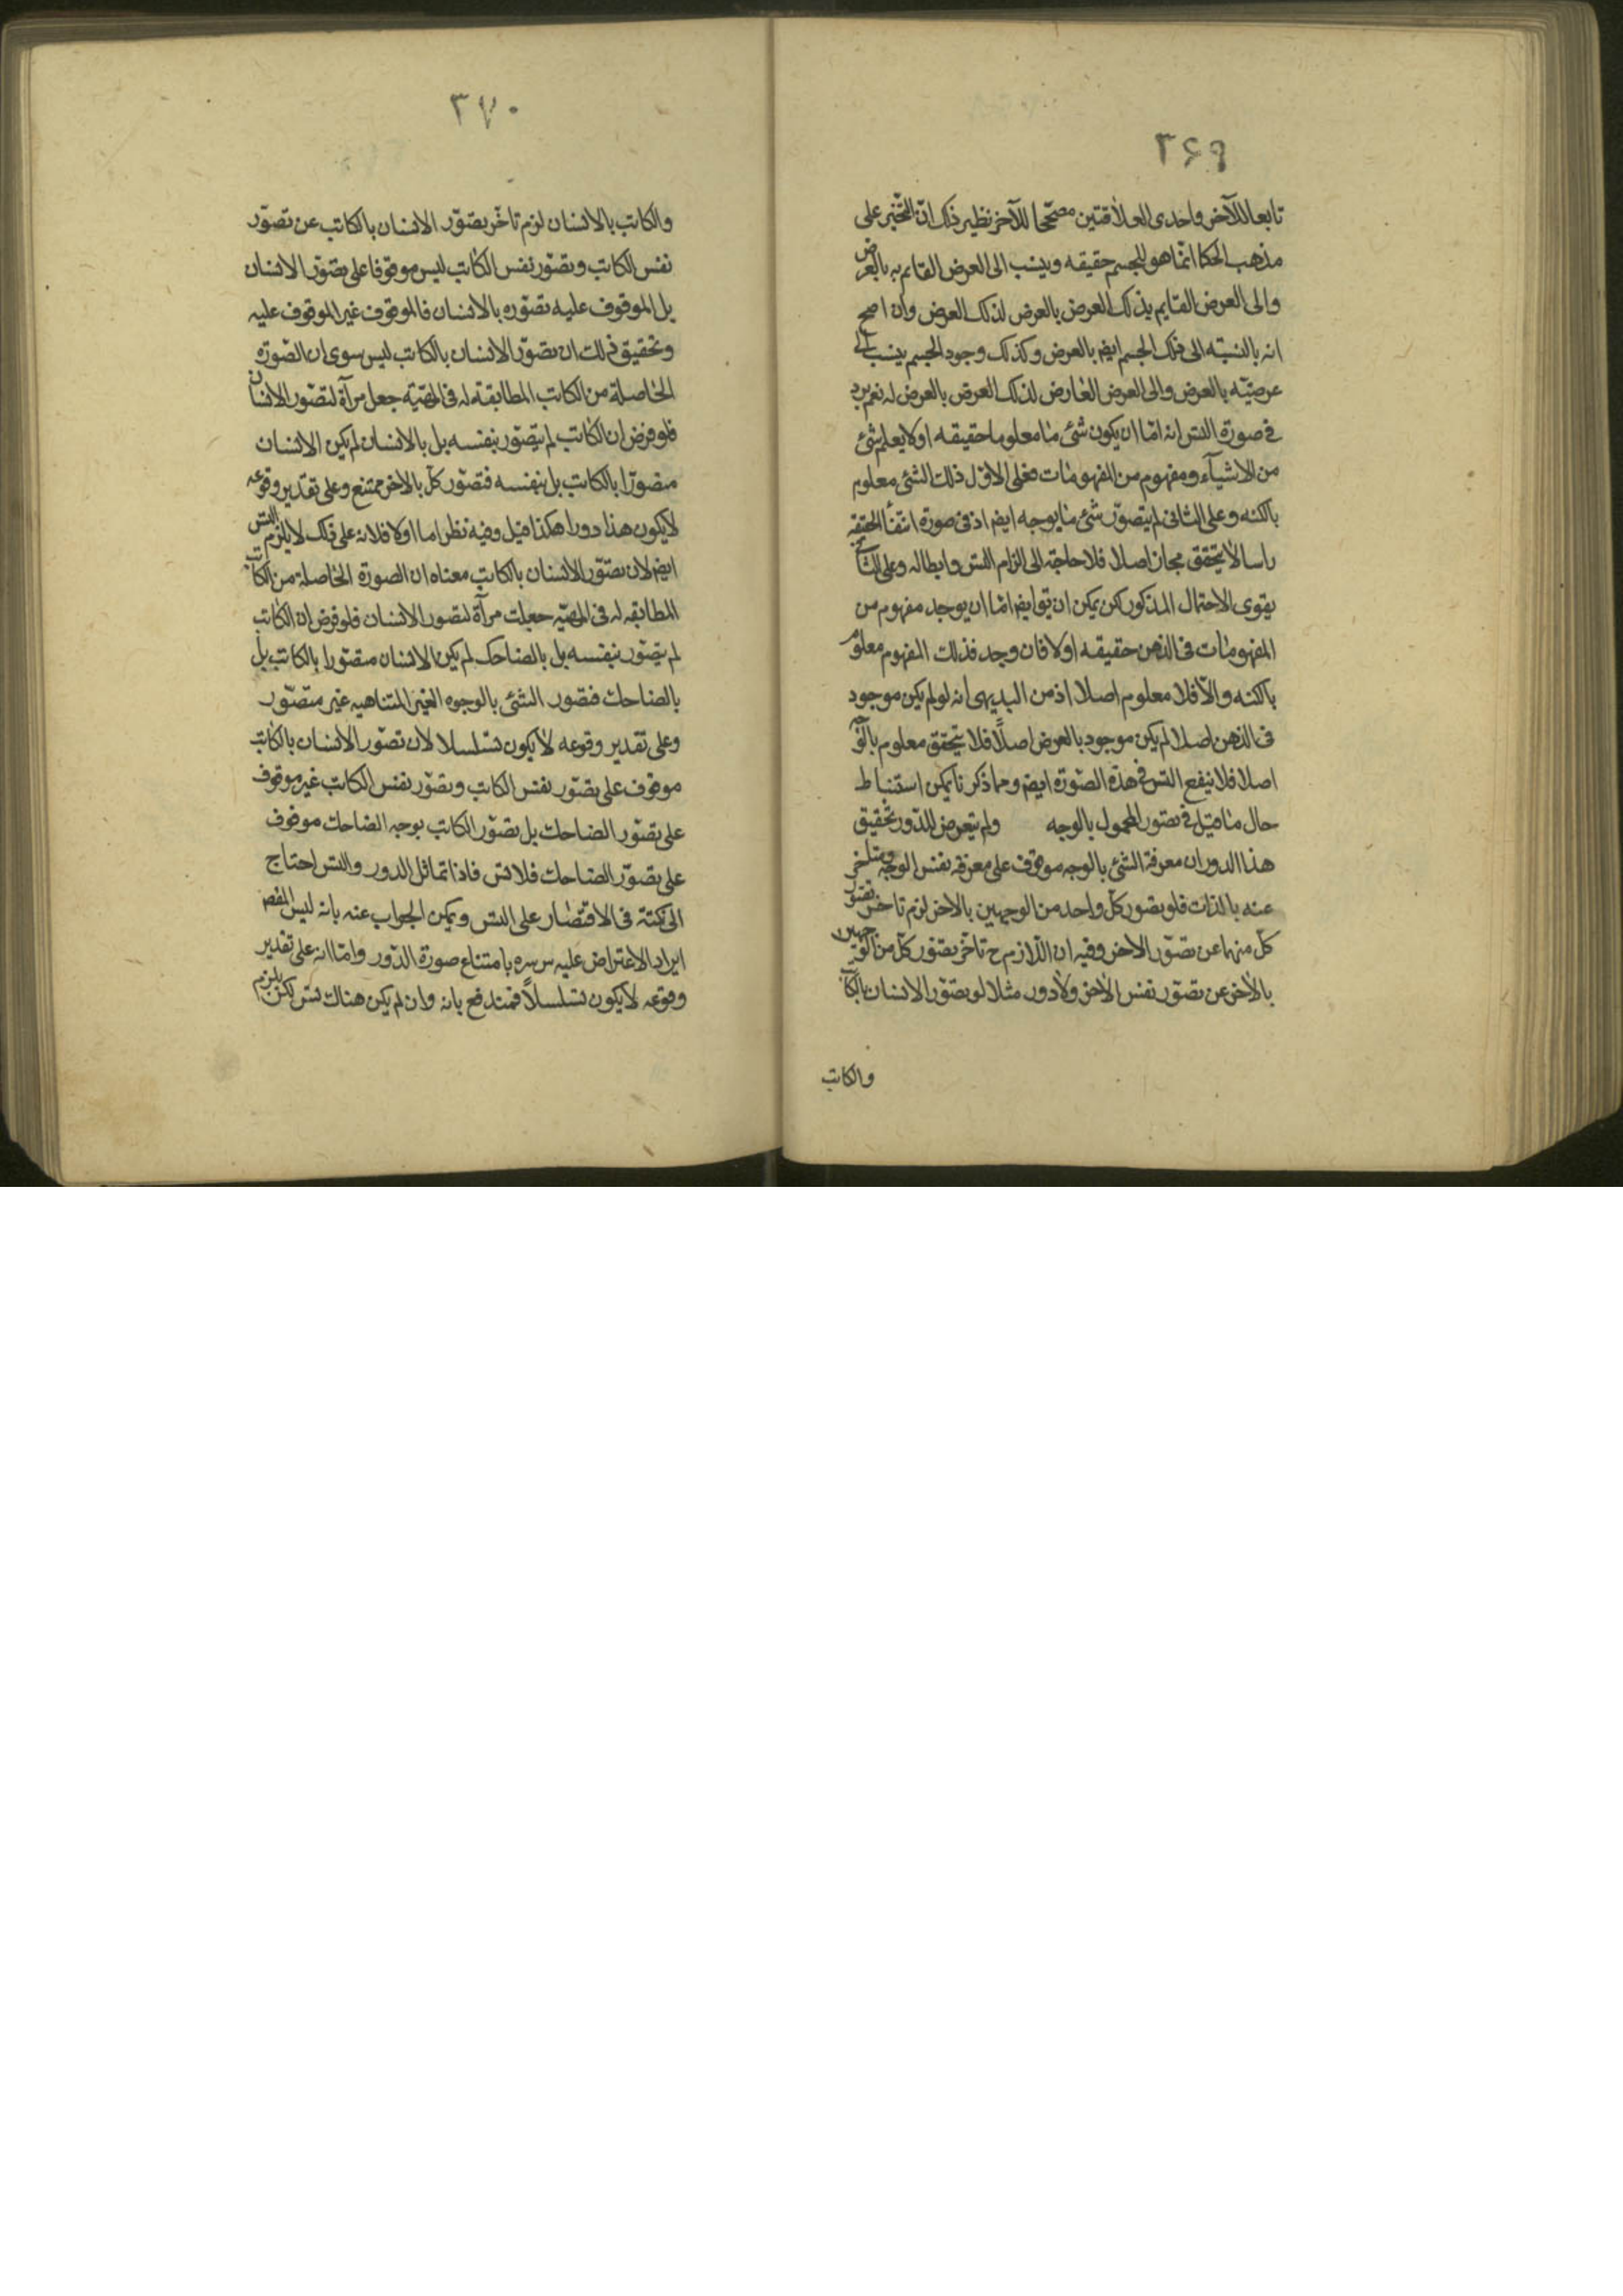 ٣۶٩
تابعا للآخر واحدى العلاقتين مصحّحا للآخر نظير ذلك انّ التحيّز على
مذهب الحكما انّما هو للجسم حقيقه وينسب الى العرض القايم به بالعرض
والى العرض القايم بذلك العرض بالعرض لذلك العرض وان اصح
انه بالنسبته الى ذلك الجسم ايضا بالعرض وكذلك وجود الجسم ينسب الى
عرضيّه بالعرض والى العرض العارض لذلك العرض بالعرض له نعم يرد
فى صورة التس انه امّا ان يكون شئ ما معلوما حقيقه او لا يعلم شئ
من الاشيآء ومفهوم من المفهومات فعلى الاوّل ذلك الشئ معلوم
بالكنه وعلى الثانى لم يتصوّر شئ ما بوجه ايضا اذ فى صورة انتفأ الحقيقه
راسا لا يتحقق مجاز اصلا فلا حاجة الى الزام التس وابطاله وعلى الثانى
يقوى الاحتمال المذكور لكن يمكن ان يقو ايضا امّا ان يوجد مفهوم من
المفهومات فى الذهن حقيقه اولا فان وجد فذلك المفهوم معلوم
بالكنه والّا فلا معلوم اصلا اذ من البديهى انه لو لم يكن موجود
فى الذهن اصلا لم يكن موجود بالعرض اصلًا فلا يتحقق معلوم بالوجه
اصلا فلا ينفع التس فى هذه الصّورة ايضا ومما ذكرنا يمكن استنباط
حال ما قيل فى تصور المجهول بالوجه ولم يتعرض للدّور تحقيق
هذا الدور ان معرفة الشئ بالوجه موقوف على معرفة نفس الوجه ومتاخر
عنه بالذات فلو تصور كلّ واحد من الوجهين بالاخر لزم تاخر تصوّر
كلّ منهما عن تصوّر الاخر وفيه ان اللّازم ح تاخّر تصوّر كلّ من الوجهين
بالاخر عن تصوّر نفس الاخر ولا دور مثلا لو تصوّر الانسان بالكاتب
والكاتب
٣٧٠
والكاتب بالانسان لزم تاخّر تصوّر الانسان بالكاتب عن تصوّر
نفس الكاتب وتصوّر نفس الكاتب ليس موقوفا على تصوّر الانسان
بل الموقوف عليه تصوّره بالانسان فالموقوف غير الموقوف عليه
وتحقيق ذلك ان تصوّر الانسان بالكاتب ليس سوى ان الصّورة
الحاصلة من الكاتب المطابقة له فى المهيّة جعل مرآة لتصّور الانسان
فلو فرض ان الكاتب لم يتصّور بنفسه بل بالانسان لم يكن الانسان
متصوّرا بالكاتب بل بنفسه فتصّور كلّ بالاخر ممتنع وعلى تقدير وقوعه
لا يكون هذا دورا هكذا قيل وفيه نظر اما اولا فلانه على ذلك لا يلزم التس
ايضا لان تصّور الانسان بالكاتب معناه ان الصورة الحاصلة من الكاتب
المطابقه له فى المهيّه جعلت مرآة لتصور الانسان فلو فرض ان الكاتب
لم يتصّور بنفسه بل بالضاحك لم يكن الانسان متصّورا بالكاتب بل
بالضاحك فتصّور الشئ بالوجوه الغير المتناهيه غير متصّور
وعلى تقدير وقوعه لا يكون تسلسلا لان تصوّر الانسان بالكاتب
موقوف على تصّور نفس الكاتب وتصوّر نفس الكاتب غير موقوف
على تصّور الضاحك بل تصوّر الكاتب بوجه الضاحك موقوف
على تصوّر الضاحك فلا تس فاذا تماثل الدور والتس احتاج
الى نكتة فى الاقتصار على التس ويمكن الجواب عنه بانه ليس المقصود
ايراد الاعتراض عليه س سره بامتناع صورة الدّور وامّا انه على تقدير
وقوعه لا يكون تسلسلًا فمندفع بانه وان لم يكن هناك تس لكن يلزم